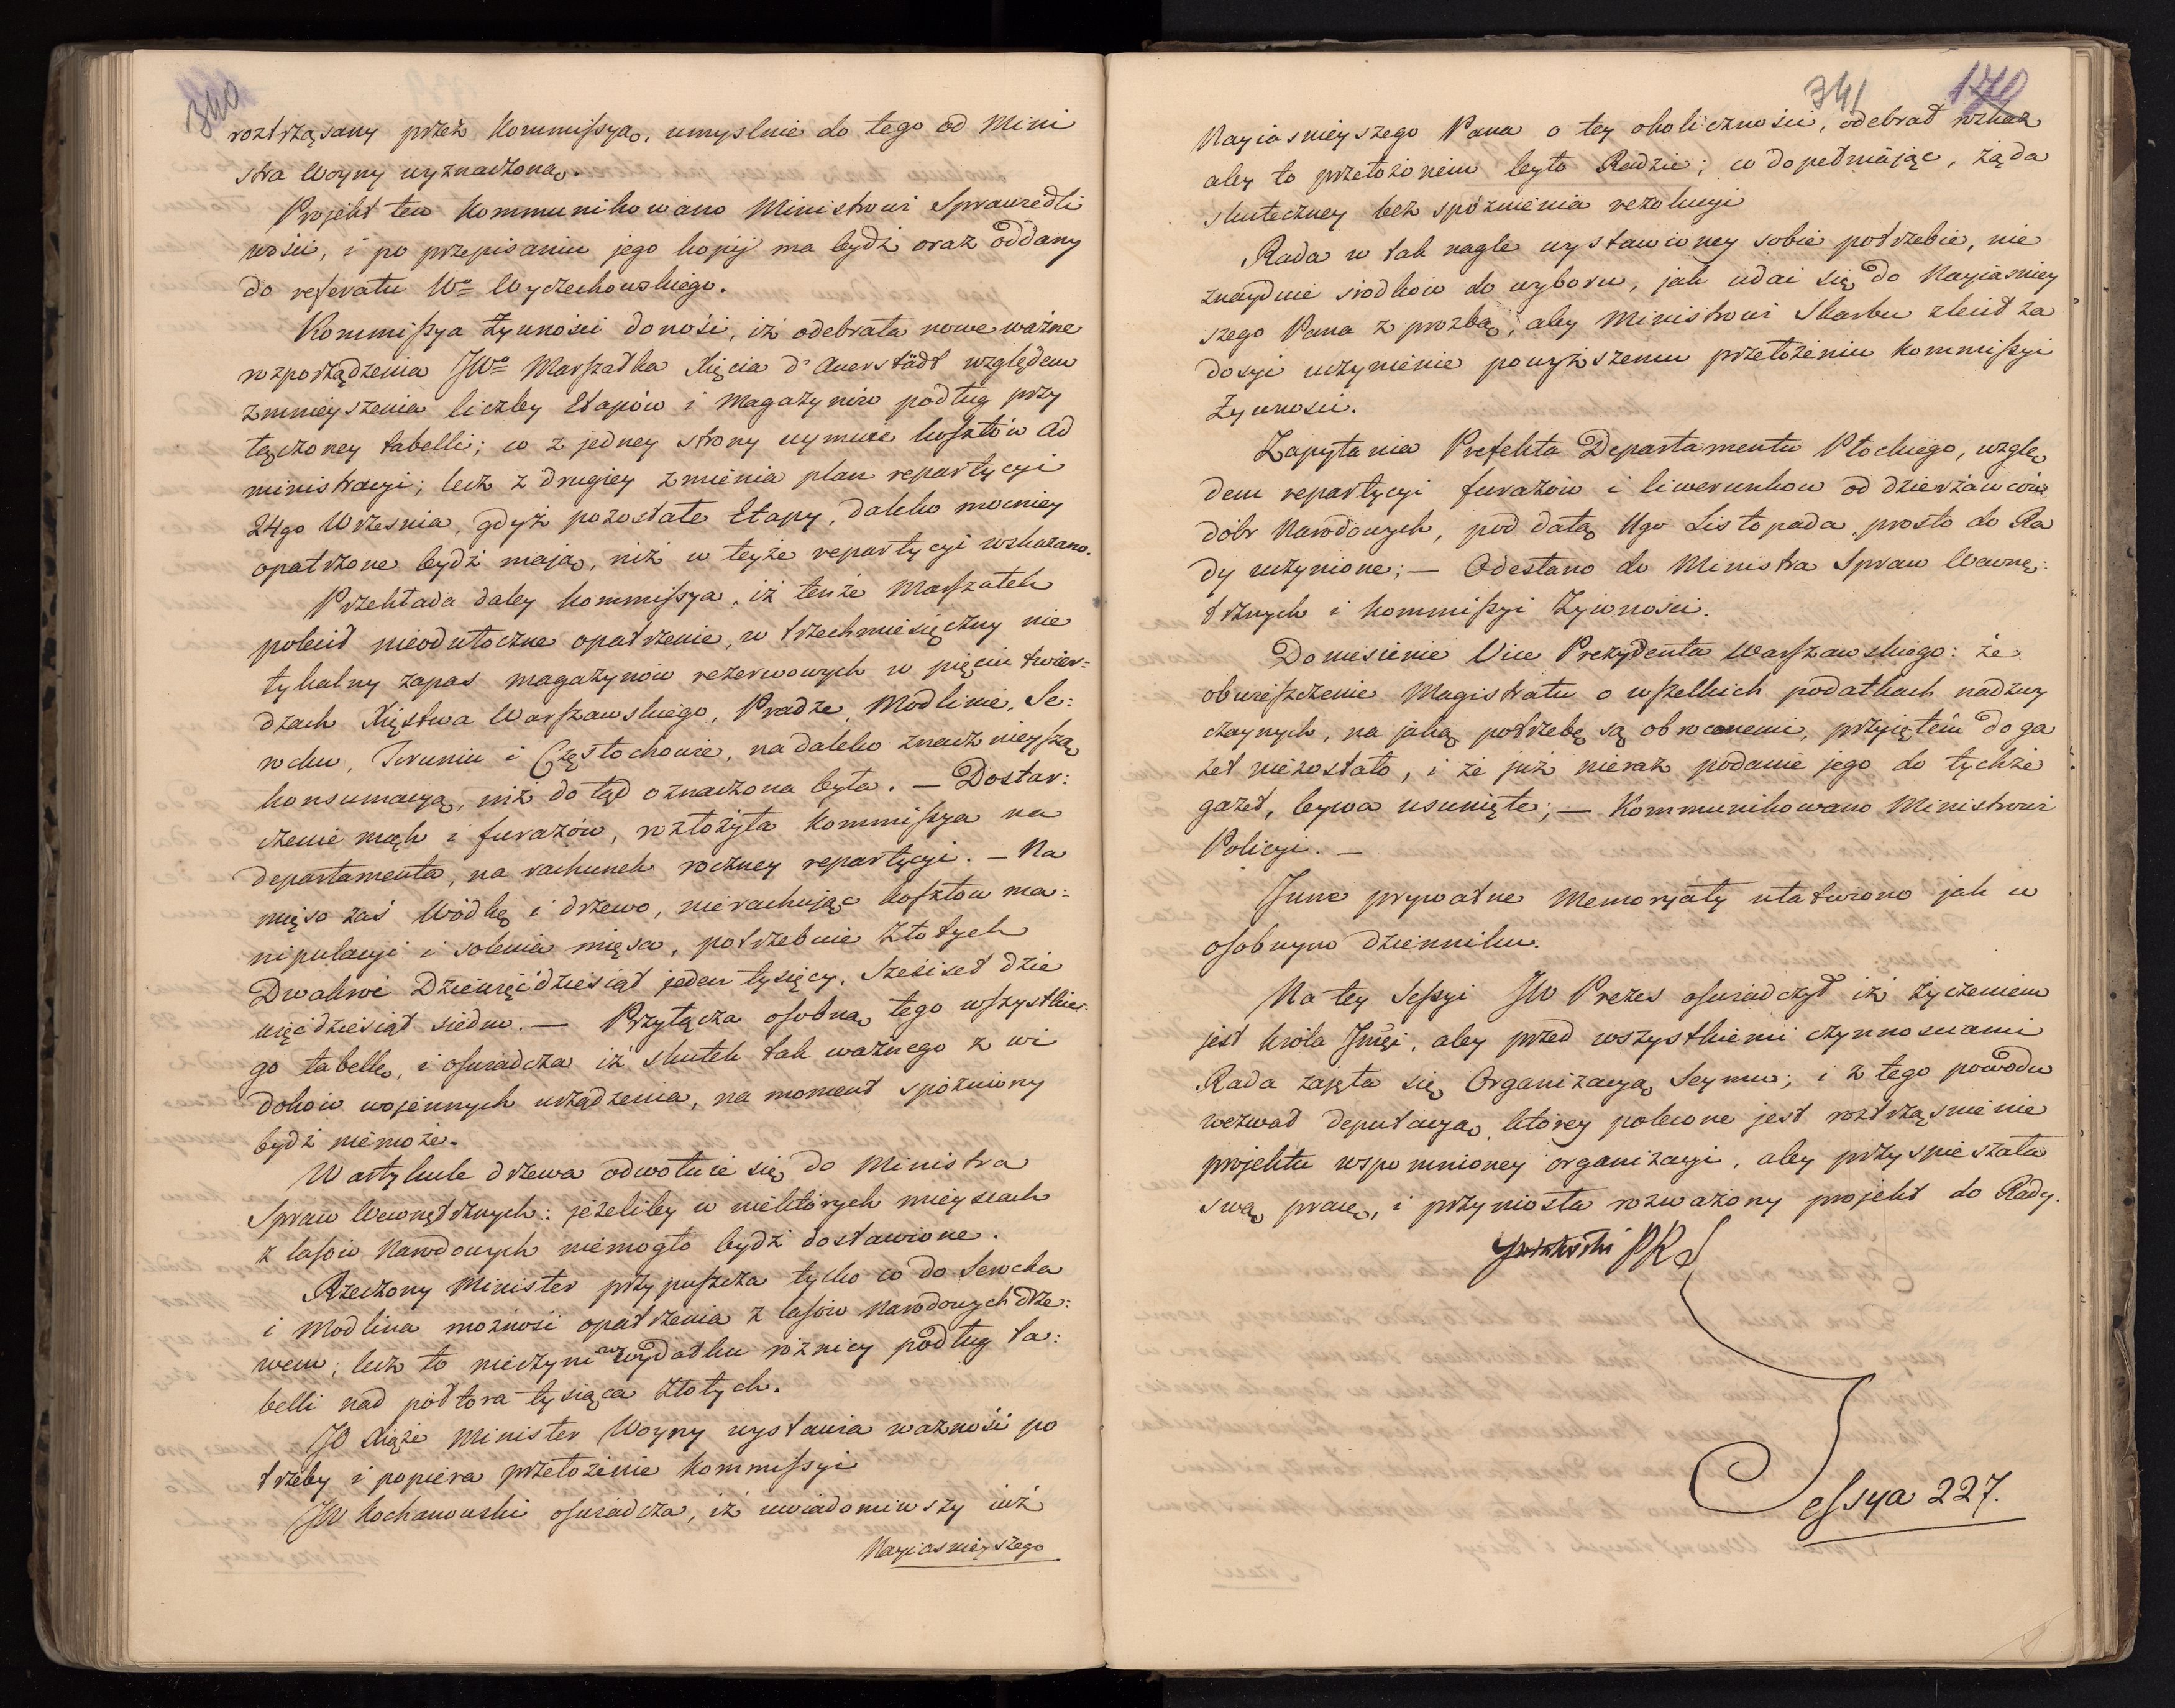 340
roztrząsany przez Kommissyą, umyslnie do tego od Mini
stra Woyny wyznaczoną.
Projekt ten kommunikowano Ministrowi Sprawiedli
wości, i po przepisaniu jego kopij ma bydź oraz oddany
do referatu Wo Wyczechowskiego.
Kommissya Żywności donosi, iż odebrała nowe ważne
rozporządzenia JWo Marszałka Xięcia d'Auerstädt względem
zmnieyszenia liczby Etapów i Magazynów podług przy
łączoney tabelli; co z jedney strony uymuie kosztów ad
ministracyi; lecz z drugiey zmienia plan repartycyi
24go Września, gdyż pozostałe Etapy, daleko mocniey
opatrzone bydź mają, niż w teyże repartycyi wskazano.
Przekłada daley Kommissya, iż tenże Marszałek
polecił nieodwłoczne opatrzenie, w trzechmiesięczny nie
tykalny zapas magazynów rezerwowych w pięciu twier=
dzach Xięstwa Warszawskiego, Pradze, Modlinie, Se=
rocku, Toruniu i Częstochowie, na daleko znacznieyszą
konsumacyą, niż dotąd oznaczona była. — Dostar:
czenie mąk i furażów, rozłożyła Kommissya na
departamenta, na rachunek roczney repartycyi. — Na
mięso zaś Wódkę i drzewo, nierachując kosztów ma:
nipulacyi i solenia mięsa, potrzebuie Złotych
Dwakroć Dziewięćdziesiąt jeden tysięcy, Sześćset dzie
więćdziesiąt siedm. — Przyłącza osobną tego wszystkie=
go tabellę, i oświadcza iż skutek tak ważnego z wi
doków wojennych urządzenia, na moment spóźniony
bydź niemoże.
W artykule drzewa odwołuie się do Ministra
Spraw Wewnętrznych: jeżeliby w niektórych mieyscach
z lasów Narodowych niemogło bydź dostawione.
Rzeczony Minister przypuszcza tylko co do Serocka
i Modlina możność opatrzenia z lasów Narodowych drze:
wem; lecz to nieczyni w wydatku różnicy podług ta:
belli nad półtora tysiąca Złotych.
JO Xiąże Minister Woyny wystawia ważność po
trzeby i popiera przełożenie Kommissyi
JW Kochanowski oświadcza, iż uwiadomiwszy już
Nayiasnieyszego
341 170
Nayiasnieyszego Pana o tey okoliczności, odebrał rozkaz
aby to przełożonem było Radzie; co dopełniając, żąda
skuteczney bez spóźnienia rezolucyi
Rada w tak nagle wystawioney sobie potrzebie, nie
znayduie srodków do wyboru, jak udać się do Nayiasniey
szego Pana z proźbą, aby Ministrowi Skarbu zlecił za
dosyć uczynienie powyższemu przełożeniu Kommissyi
Żywności.
Zapytania Prefekta Departamentu Płockiego, wzglę
dem repartycyi furażów i liwerunków od dzierżawców
dóbr Narodowych, pod datą 11go Listopada, prosto do Ra
dy uczynione; — Odesłano do Ministra Spraw Wewnę:
trznych i Kommissyi Żywności.
Doniesienie Vice Prezydenta Warszawskiego: że
obwieszczenie Magistratu o wszelkich podatkach nadzwy
czaynych, na jaką potrzebę są obrocone, przyiętem do ga
zet niezostało, i że już nieraz podanie jego do tychże
gazet, bywa usunięte; — Kommunikowano Ministrowi
Policyi. —
Inne prywatne Memoryały ułatwiono jak w
osobnym dzienniku.
Na tey Sessyi JW Prezes oświadczył iż życzeniem
jest Króla Jmci, aby przed wszystkiemi czynnosciami
Rada zajęła się Organizacyą Seymu; i z tego powodu
wezwał deputacyą, którey polecone jest roztrząśnienie
projektu wspomnioney organizacyi, aby przyspieszała
swą pracę, i przyniosła rozważony projekt do Rady.
Sessya 227.